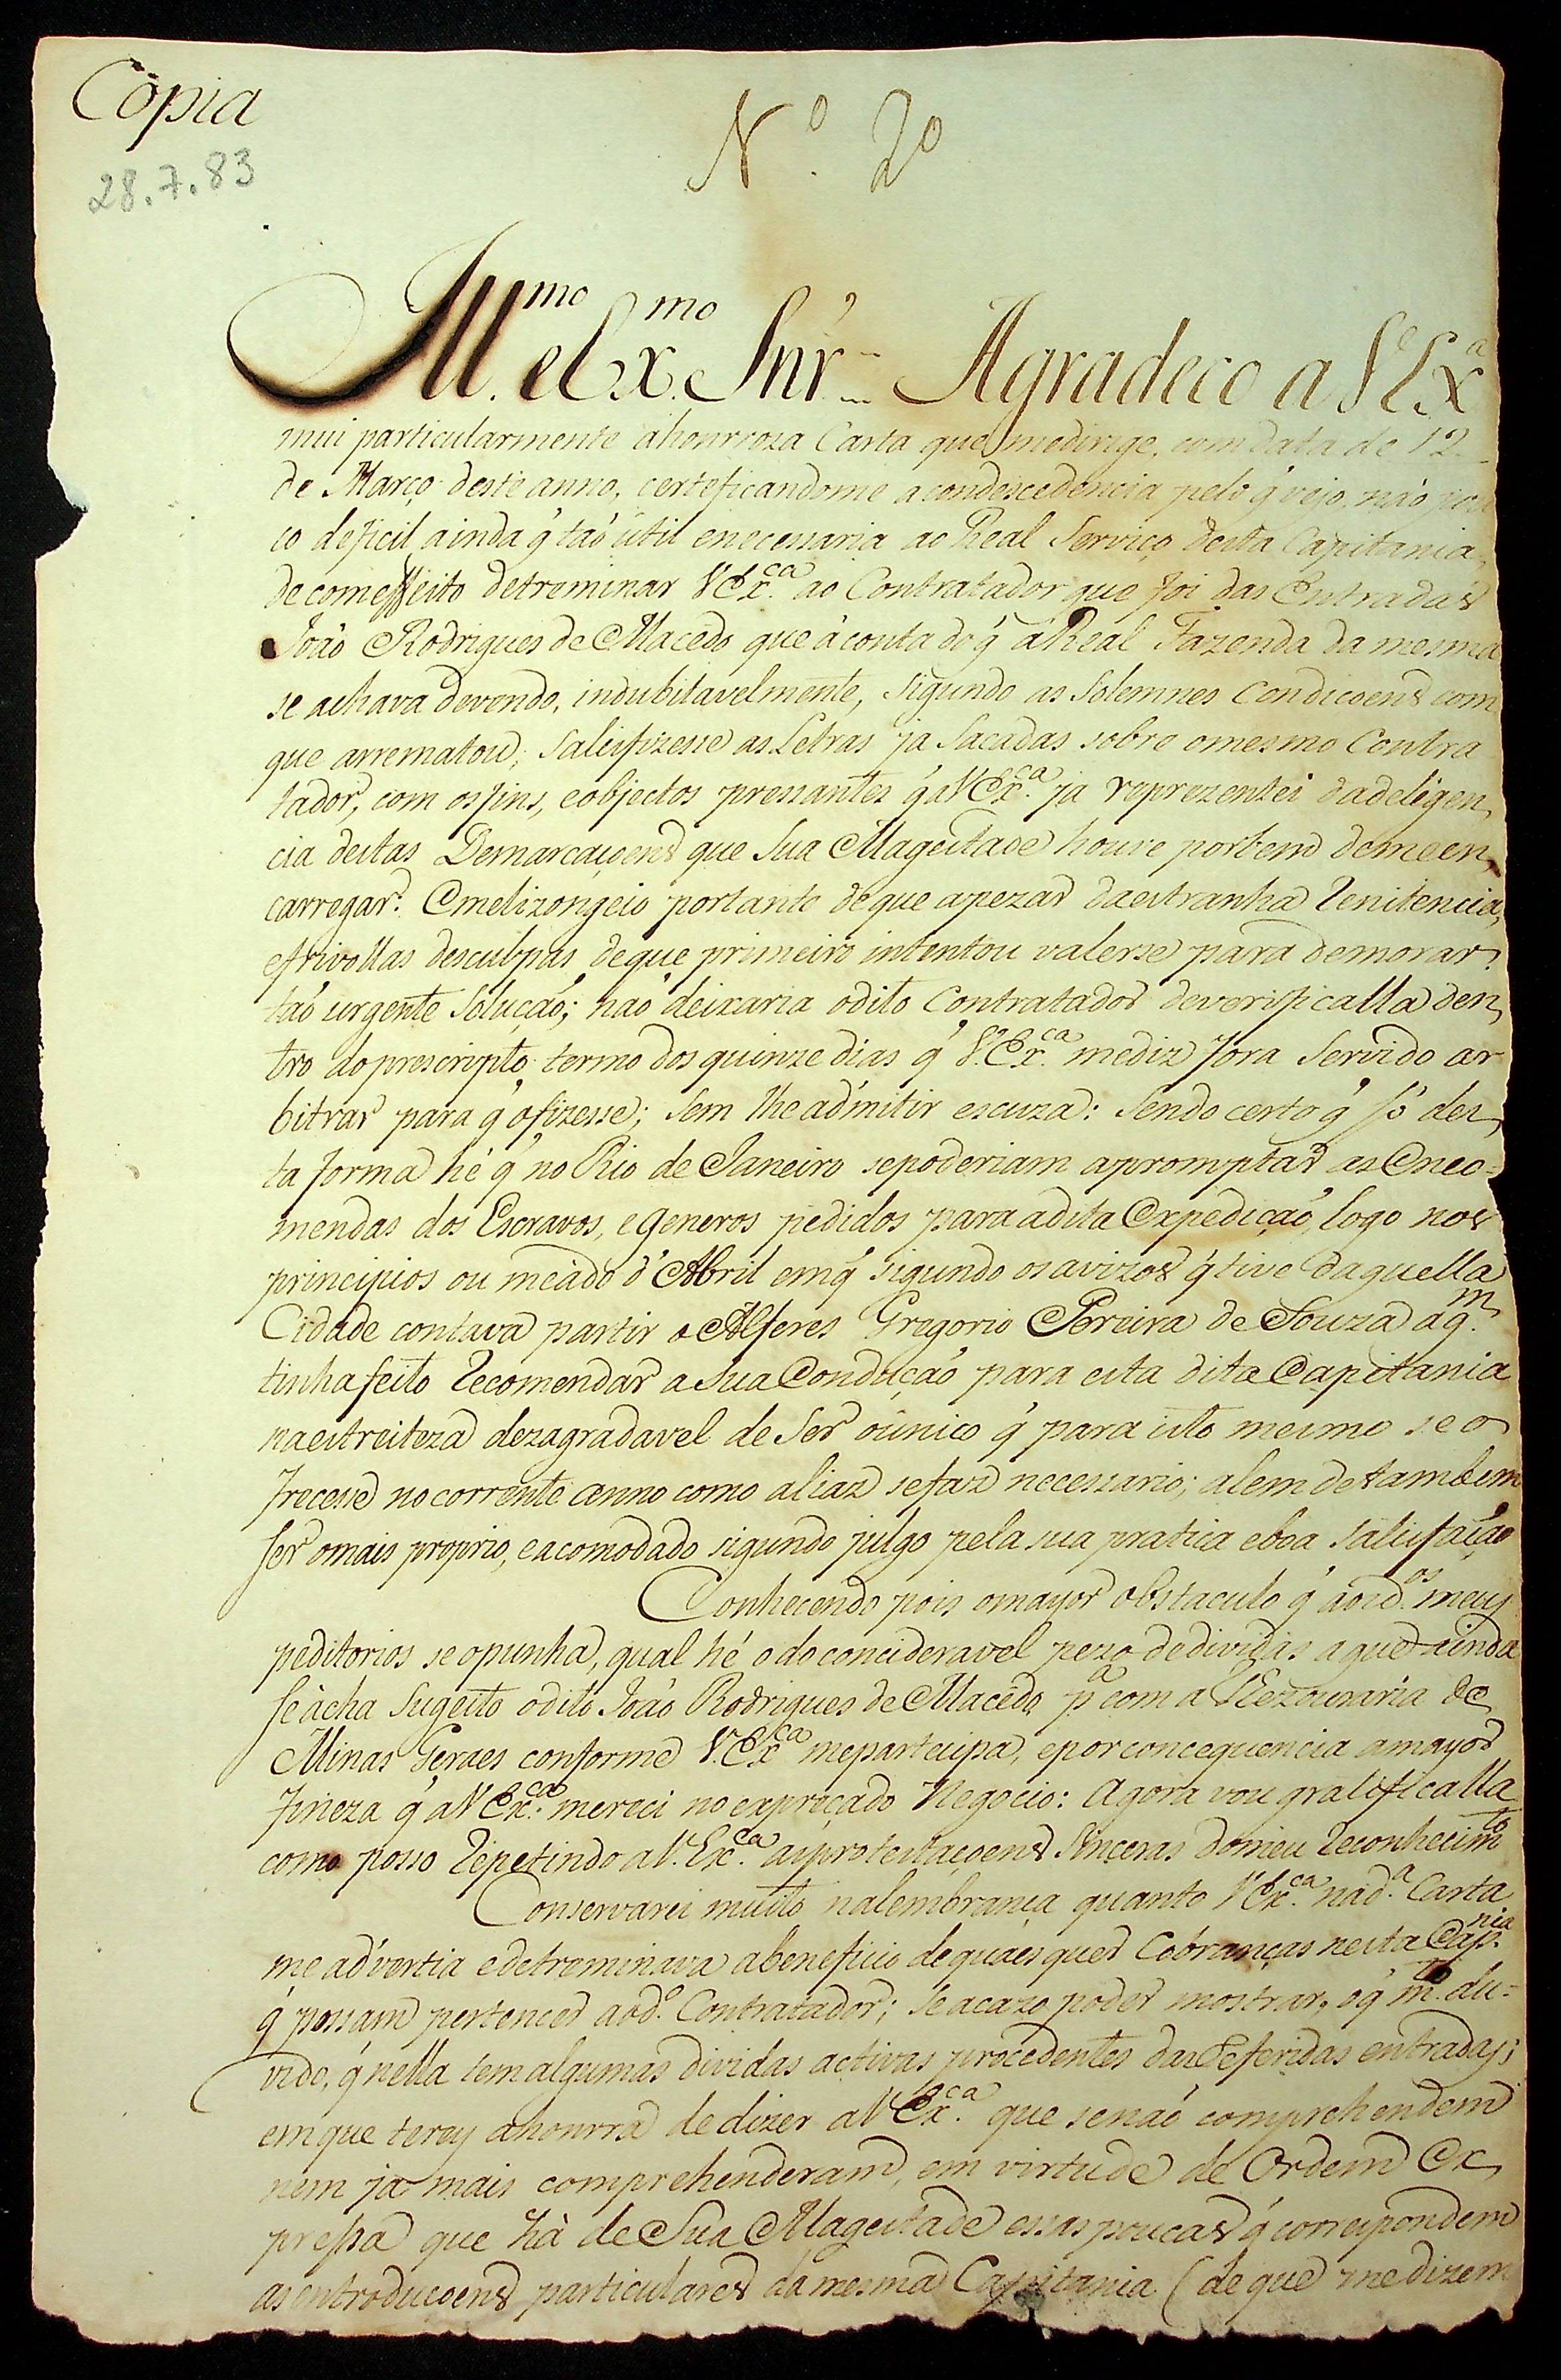 Copia
28.7.83
Nº. 20
Illmo. e Exmo. Snr. Agradeco a V Exa
mui particularmente ahonrroza Carta que medirige, com data de 12
de Março deste anno, certeficandome a condescedencia pelo q' vejo não pou
co deficil ainda q' taõ util enecessaria ao Real Serviço desta Capitania,
de comeffeito detreminar V Exca. ao Contratador que foi das Entradas
João Rodrigues de Macedo que áconta do q' á Real Fazenda da mesma
se achava devendo, indubitavelmente, sigundo as Solemnes Condicoens com
que arrematou; Satisfizesse as Letras já Sacadas sobre omesmo Contra
tador, com osfins, eobjectos pressantes q' a V Exca. já reprezentei dadeligen,
cia destas Demarcaçoens que Sua Magestade houve porbem demeen,
carregar. Emelizongeio portanto deque apezar daestranha renitencia,
efrivollas desculpas deque primeiro intentou valerse para demorar
taõ urgente Soluçaõ; naõ deixaria odito Contratador deverificalla den,
tro doprescripto termo dos quinze dias q' V. Exca. mediz fora Servido ar
bitrar para q' ofizesse; Sem lhe admitir escuza: Sendo certo q' só des,
ta forma hé q' no Rio de Janeiro sepoderiam apromptar as Enco=
mendas dos Escravos, e generos pedidos para adita Expediçaõ, logo nos
principios ou meàdo d'Abril emq' sigundo osavizos q' tive daquella
Cidade contava partir o Alferes Gregorio Pereira de Souza áqm.
tinha feito recomendar a sua Conduçaõ para esta dita Capitania
naestreiteza dezagradavel de Ser oúnico q' para isto mesmo se o
frecesse nocorrente anno como aliaz sefaz necessario; alem detambem
ser omais proprio, eacomodado sigundo julgo pela sua pratica eboa Satisfaçaõ
Conhecendo pois omayor obstaculo q' áosdos. meus
peditorios se opunha, qual hé odoconcideravel pezo dedividas aque ainda
se ácha Sugeito odito João Rodrigues de Macedo pa com a Thezouraria de
Minas Geraes conforme V. Exca meparteicipa, eporconcequencia amayor
fineza q' aV Exca. mereci no expreçado Negocio: Agora vou gratificalla
como posso repetindo aV. Exca. asprotestaçoens Sinceras domeu reconhecimto
Conservarei muito nalembrança quanto V Exca. nada. Carta
me advertia edetreminava abeneficio dequaesquer Cobranças nesta Capnia.
q' possam pertencer aodo. Contratador; se acazo poder mostrar, oq' mto. du=
vido, q' nella tem algumas dividas activas procedentes dasreferidas entradas;
emque terey ahonrra de dizer aV Exca. que senaõ comprehendem
nem ja mais comprehenderam, em virtude de Ordem Ex,
pressa que há de Sua Magestade essas poucas q' correspondem
as introducoens particulares da mesma Capitania (de que medizem